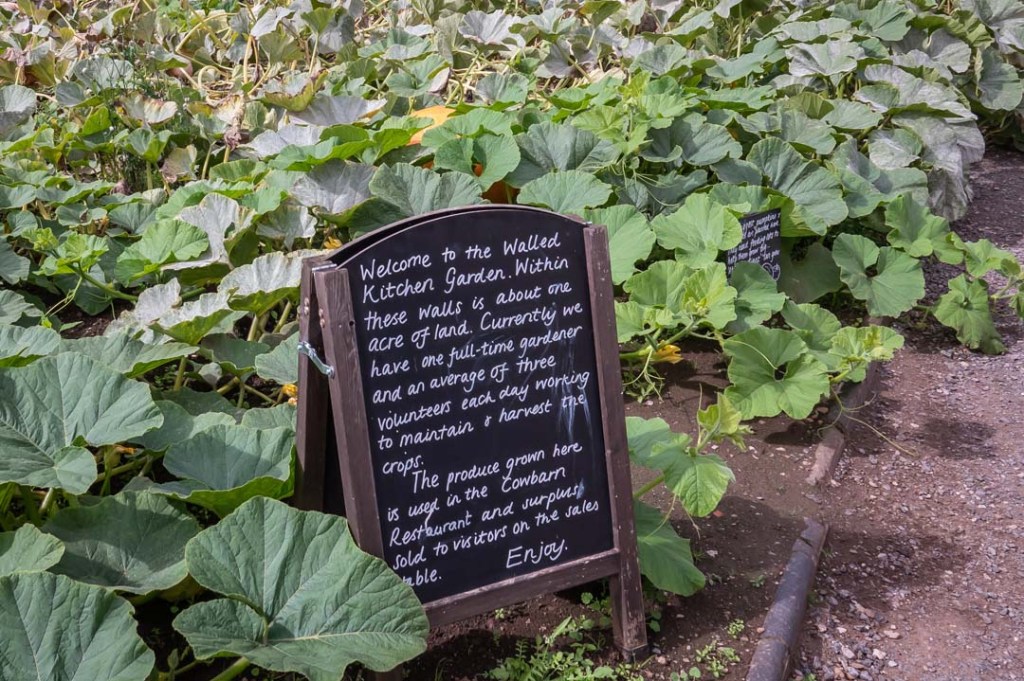 Welcome to the Walled
Kitchen Garden. Within
these walls is about one
acre of land. Currently we
have one full-time gardener
and an average of three
volunteers each day working
to maintain & harvest the
crops.
The produce grown here
is used in the Cowbarn
Restaurant and surplus
sold to visitors on the sales
table.
Enjoy.